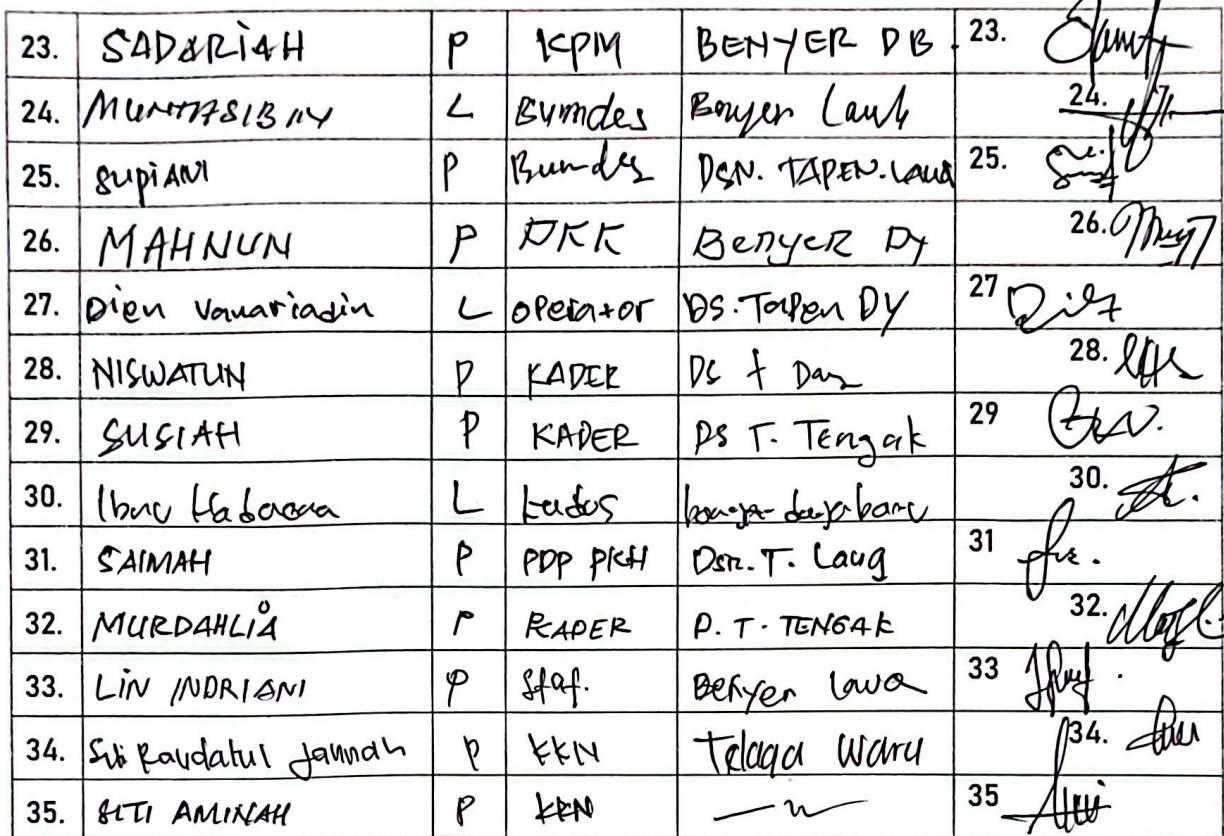 23. SADARIAH P KPM BENYER DB. 23.
24. L Bumdes Benyer Lauk 24.
25. SUPIANI P Bumdes DSN. TAPEN. LAUQ 25.
26. MAHNUN P PKK Benyer DY 26.
27. Dien Vanariadin L operator DS. Tapen DY 27
28. NISWATUN P KADER DS T Day 28.
29. SUSIAH P KADER DS T. Tengak 29
30. Ibnu L kadus 30.
31. SAIMAH P PDP PKH Dsn. T. Lauq 31
32. MURDAHLIA P KADER D. T. TENGAK 32.
33. LIN INDRIANI P Staf. Benyer 33
34. Siti Raudatul Jannah P KKN Telaga Waru 34.
35. SITI AMINAH P KKN 35